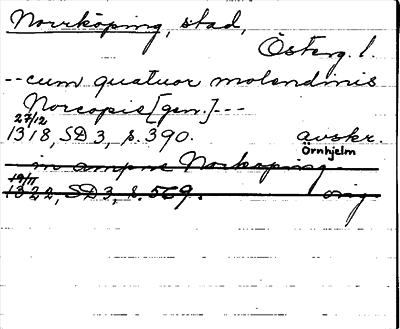 Norrköping, stad,
Österg. l.
--cum quatuor molendinis
Norcopis [gen.]---
27/12
1318, SD 3, s. 390. avskr.
Örnhjelm
in ampne Norkøping
19/11
1322, SD 3, s. 569. orig